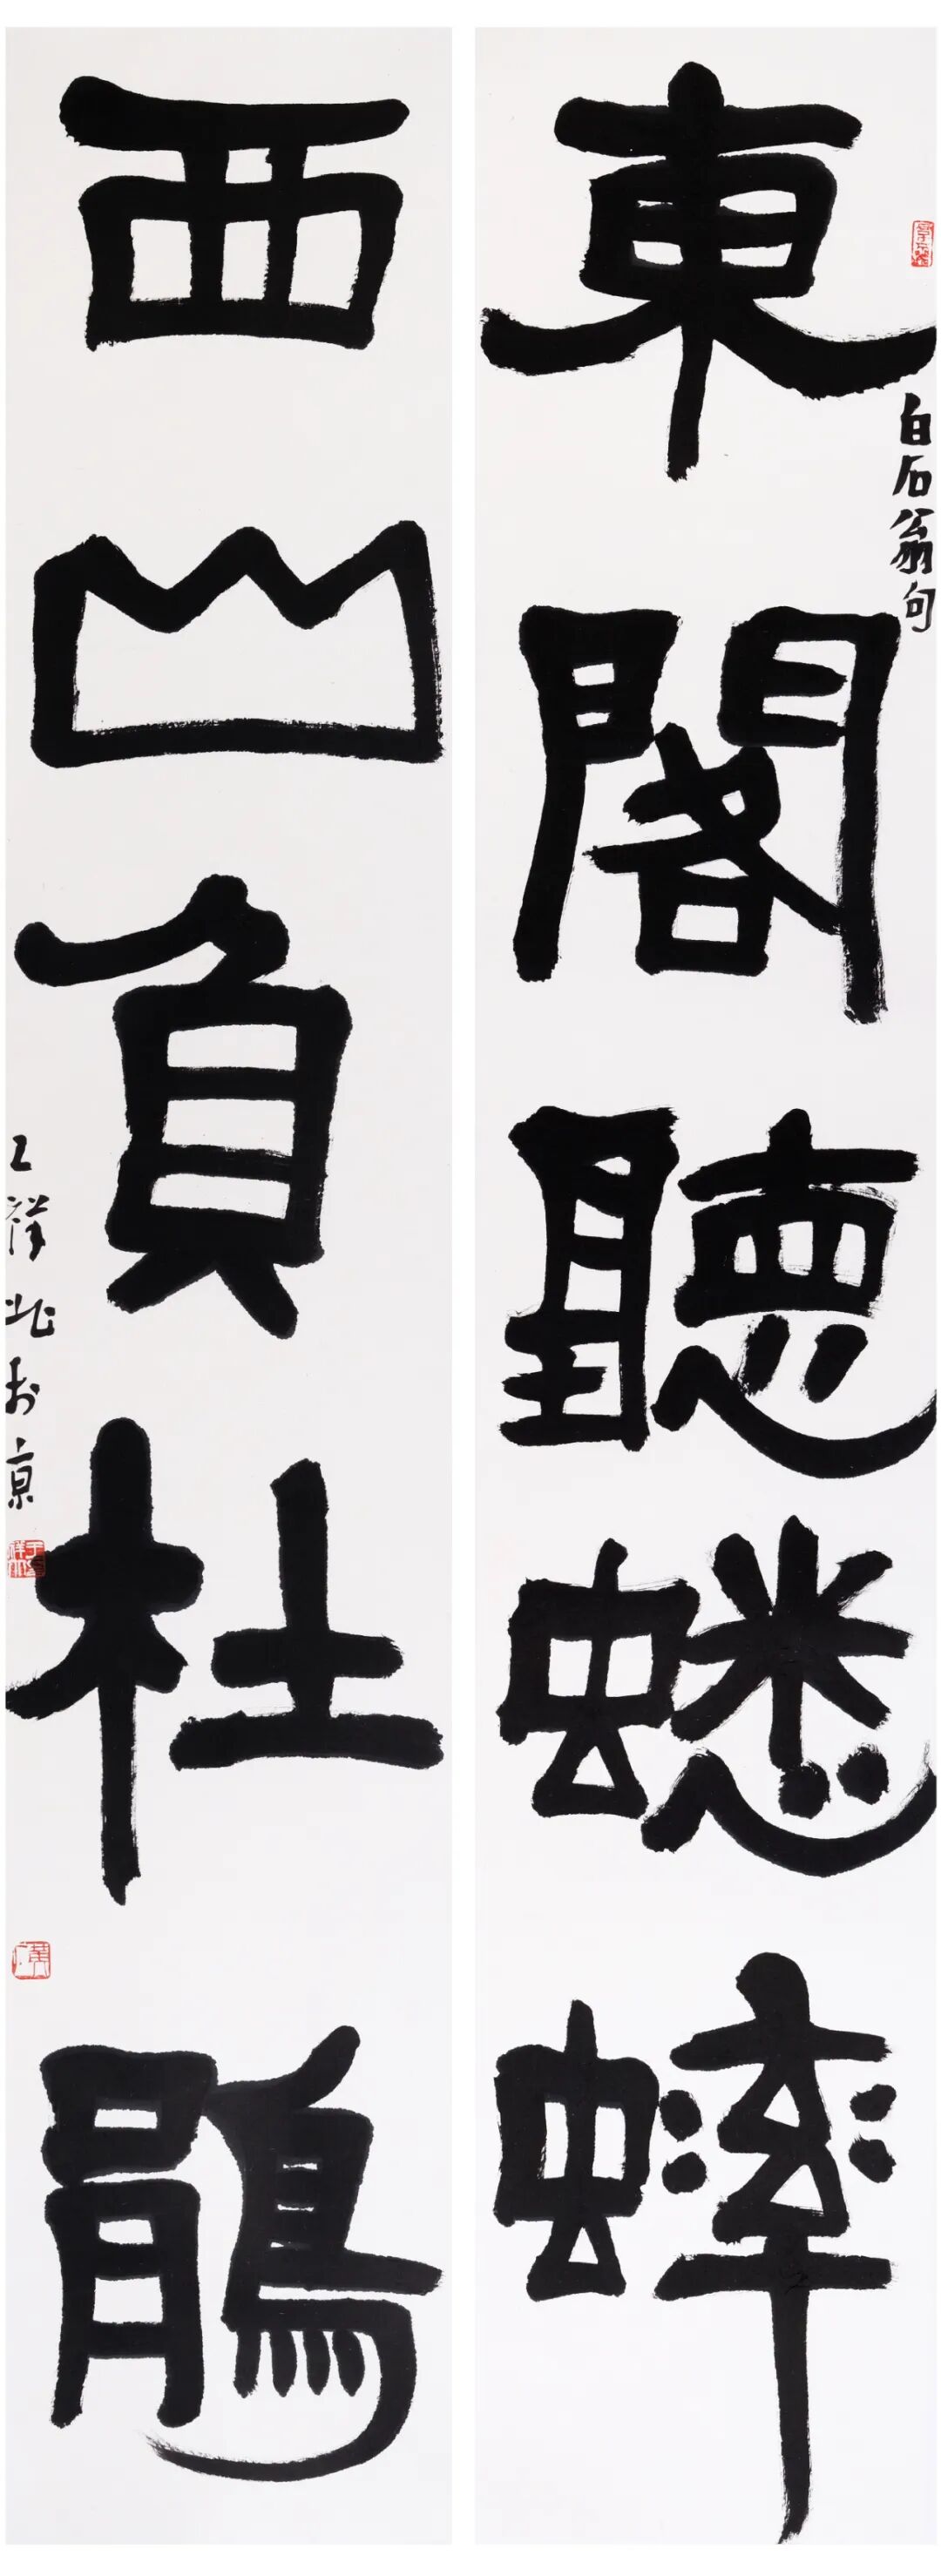 東閣聽蟋蟀
白石翁句
西山負杜鵑
祥兆于京